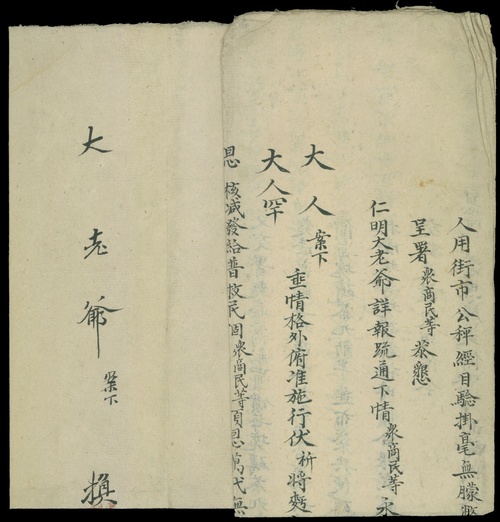 人用街市公秤經目驗掛毫無朦弊
呈署衆商民等恭懇
仁明大老爺詳報疏通下情衆商民等永
大人案下垂情格外俯准施行伏祈將
大人罕
恩核減發給普救民困衆商民等頂恩萬代無
大老爺案下